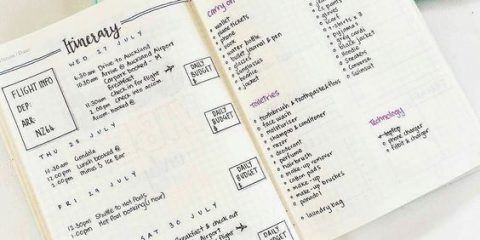 Itinerary
WED 27 JULY
6.30am Drive to Auckland
10.30am Arrive @ Auckland Airport
Carpark booked - M
Breakfast
Check in for flight
flight
check into accom.
DAILY BUDGET $
FLIGHT INFO
DEP:
ARR:
NZ66
THU 28 JULY
11.30am Gondola
Lunch booked @
Minus 5 Ice Bar
DAILY BUDGET $
FRI 29 JULY
12.30pm Shuttle to Hot Pools
Hot Pool booking (1 hour)
DAILY BUDGET $
SAT 30 JULY
Breakfast & check out
DAILY
carry on
wallet
phone
book
water bottle
bullet journal & pen
sunglasses
beanie
jacket
t-shirts x 3
jeans
pyjamas
black jacket
hoodie
sneakers
converse
swimsuit
toiletries
toothbrush & toothpaste & floss
face wash
moisturiser
shampoo & conditioner
razor
deodorant
perfume
hairbrush
make-up remover
cotton pads
make-up
make-up brushes
panadol
laundry bag
Technology
laptop
phone charger
fitbit & charger